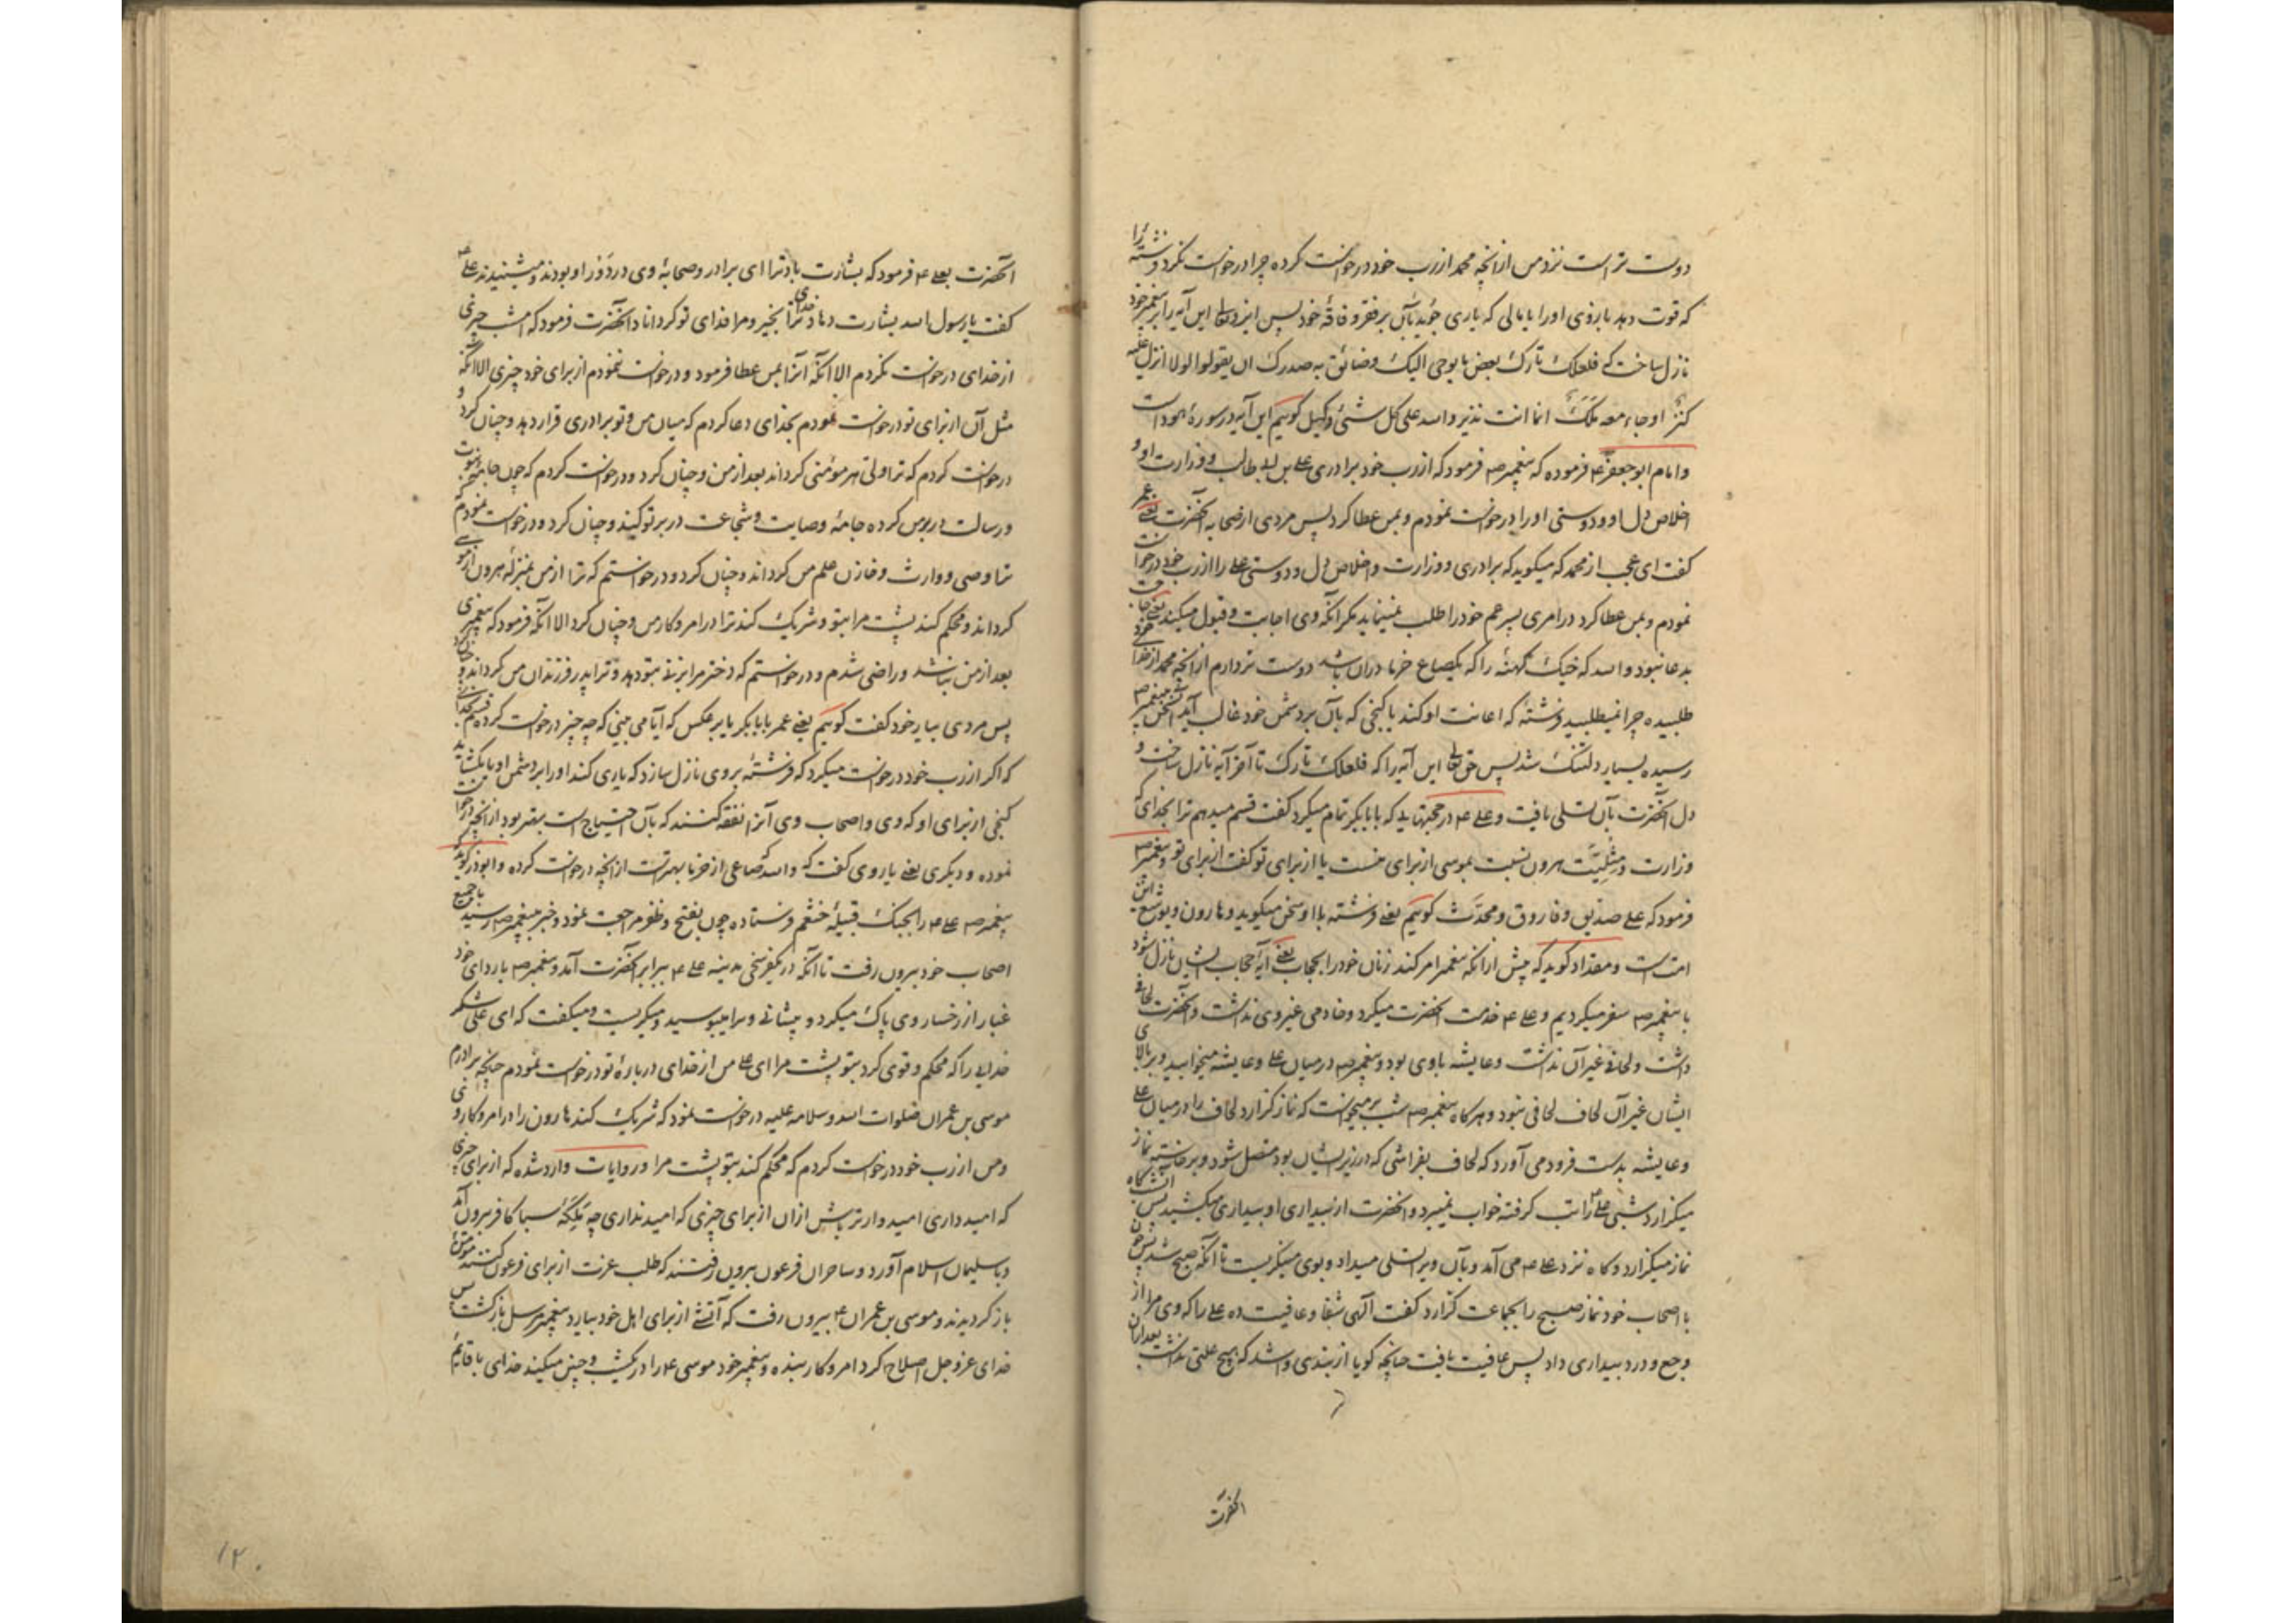 دوست تر است نزد من از آنچه محمد از رب خود درخواست کرده چرا درخواست نکرد فرشته را
که قوت دهد بازوی اورا یا مالی که یاری جوید بآن بر فقر و فاقهٔ خود پس ایزد تعالی این آیه را بر پیغمبر خود
نازل ساخت که فلعلک تارک بعض ما یوحی الیک وضائق به صدرک ان یقولوا لولا انزل علیه
کنز او جاء معه ملک انما انت نذیر والله علی کل شئ وکیل گوییم این آیه در سورهٔ هود است
وامام ابو جعفر ع فرموده که پیغمبر ص فرمود که از رب خود برادری علی بن ابی طالب ووزارت او و
اخلاص دل او ودوستی اورا درخواست نمودم وبمن عطا کرد پس مردی از صحابه آنحضرت یعنی عمر
گفت ای عجب از محمد که میگوید که برادری ووزارت واخلاص دل ودوستی علی را از رب خود درخواست
نمودم وبمن عطا کرد در امری پسر عم خود را طلب نمینماید مگر آنکه وی اجابت وقبول میکند یعنی حاجت
بدعا نبود والله که خیک کهنهٔ را که یکصاع خرما دران باشد دوست تر دارم از آنچه محمد از خدای خود
طلبیده چرا نمیطلبید فرشتهٔ که اعانت او کند یا گنجی که بآن بر دشمن خود غالب آید این سخن به پیغمبر ص
رسیده بسیار دلتنگ شد پس حق تعالی این آیه را که فلعلک تارک تا آخر آیه نازل ساخت و
دل آنحضرت بآن تسلی یافت وعلی ع در حجتهایی که بابابکر تمام میکرد گفت قسم میدهم ترا بخدای که
وزارت ومثلیت هرون نسبت بموسی از برای منست یا از برای تو گفت از برای تو وپیغمبر ص
فرمود که علی صدیق وفاروق ومحدث گوییم یعنی فرشته با او سخن میگوید وهارون ویوشع این
امت است ومقداد گوید که پیش از آنکه پیغمبر امر کند زنان خود را بحجاب یعنی آیه حجاب ایشان نازل شود
با پیغمبر ص سفر میکردیم وعلی ع خدمت آنحضرت میکرد وخادمی غیر وی نداشت وآنحضرت لحافی
داشت ولحافی غیر آن نداشت وعایشه باوی بود وپیغمبر ص در میان علی وعایشه میخوابید وبر بالای
ایشان غیر آن لحاف لحافی نبود وهر گاه پیغمبر ص شب بر میخواست که نماز گزارد لحاف را در میان علی
وعایشه بدست فرود می آورد که لحاف بفراشی که در زیر ایشان بود متصل شود وبر خاسته نماز
میگزارد شبی علی ع را تب گرفته خواب نمیبرد وآنحضرت از بیداری او بیداری میکشید پس آن شب گاه
نماز میگزارد وگاه نزد علی ع می آمد وبآن ویرا تسلی میداد وبوی مینگریست تا آنکه صبح شد پس چون
با اصحاب خود نماز صبح را بجماعت گزارد گفت الهی شفا وعافیت ده علی را که وی مرا از
وجع ودرد بیداری داد پس عافیت یافت چنانچه گویا از بندی وا شد که هیچ علتی نداشت بعد از آن
آنحضرت
آنحضرت بعلی ع فرمود که بشارت باد ترا ای برادر وصحابهٔ وی در دور او بودند ومیشنیدند علی ع
گفت یا رسول الله بشارت دهاد ترا خدای بخیر ومرا فدای تو گرداناد آنحضرت فرمود که امشب چیزی
از خدای درخواست نکردم الا آنکه آنرا بمن عطا فرمود ودرخواست ننمودم از برای خود چیزی الا آنکه
مثل آن از برای تو درخواست نمودم بخدای دعا کردم که میان من وتو برادری قرار دهد وچنان کرد و
درخواست کردم که ترا ولی هر مؤمنی گرداند بعد از من وچنان کرد ودرخواست کردم که چون جامهٔ نبوت
ورسالت در بر من کرده جامهٔ وصایت وشجاعت در بر تو کند وچنان کرد ودرخواست نمودم که
ترا وصی ووارث وخازن علم من گرداند وچنان کرد ودرخواستم که ترا از من بمنزلهٔ هرون از موسی
گرداند ومحکم کند پشت مرا بتو وشریک کند ترا در امر وکار من وچنان کرد الا آنکه فرمود که پیغمبری
بعد از من نباشد وراضی شدم ودرخواستم که دختر مرا بزنی بتو دهد وترا پدر فرزندان من گرداند وچنان کرد
پس مردی بیار خود گفت گوییم یعنی عمر بابابکر یا بر عکس که آیا می بینی که چه چیز درخواست کرده قسم بخدا
که اگر از رب خود درخواست میکرد که فرشتهٔ بر وی نازل سازد که یاری کند اورا بر دشمن او یا بگشاید
گنجی از برای او که وی واصحاب وی آنرا نفقه کنند که بآن احتیاج است بهتر بود از آنچه درخواست
نموده ودیگری یعنی یار وی گفت که والله که صاعی از خرما بهتر است از آنچه درخواست کرده وابوذر گوید که
پیغمبر ص علی ع را بجنگ قبیلهٔ خثعم فرستاده چون بفتح وظفر مراجعت نمود وخبر بپیغمبر ص رسید با جمیع
اصحاب خود بیرون رفت تا آنکه در یکفرسخی مدینه علی ع برابر آنحضرت آمد وپیغمبر ص با ردای خود
غبار از رخسار وی پاک میکرد وپیشانی ویرا میبوسید ومیگریست ومیگفت که ای علی شکر
خدایی را که محکم وقوی کرد بتو پشت مرا ای علی من از خدای دربارهٔ تو درخواست نمودم چنانچه برادرم
موسی بن عمران صلوات الله وسلامه علیه درخواست نمود که شریک کند هارون را در امر وکار وی
ومن از رب خود درخواست کردم که محکم کند بتو پشت مرا ودر روایات وارد شده که از برای چیزی
که امید داری امیدوارتر باش ازان از برای چیزی که امید نداری چه ملکهٔ سبا کافر بیرون آمد
وبا سلیمان اسلام آورد وساحران فرعون بیرون رفتند که طلب عزت از برای فرعون کنند مؤمن
باز گردیدند وموسی بن عمران ع بیرون رفت که آتشی از برای اهل خود بیارد پیغمبر مرسل باز گشت پس
خدای عز وجل اصلاح کرد امر وکار بنده وپیغمبر خود موسی ع را در یکشب وچنین میکند خدای با قائم
۱۲۰